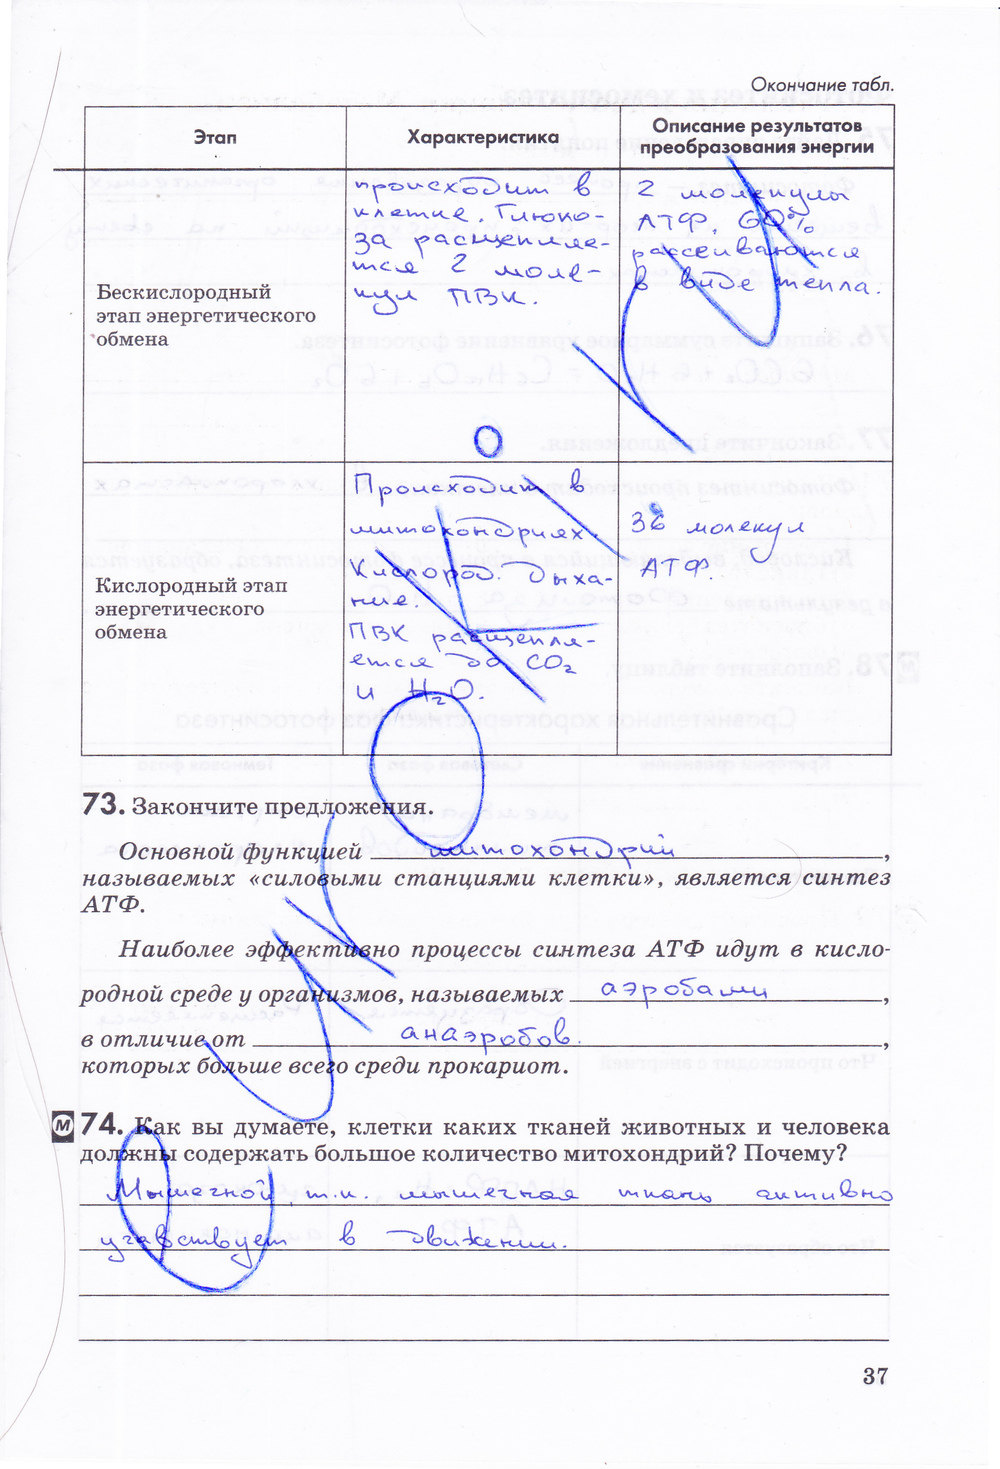 Окончание табл.
Этап
Характеристика
Описание результатов
преобразования энергии
Бескислородный
этап энергетического
обмена
происходит в
клетке. Глюко-
за расщепляе-
тся 2 моле-
кул ПВК.
2 молекулы
АТФ, 60%
рассеиваются
в виде тепла.
Кислородный этап
энергетического
обмена
Происходит в
митохондриях
Кислород. дыха-
ние.
ПВК расщепля-
ется до CO₂
и H₂O.
36 молекул
АТФ.
73. Закончите предложения.
Основной функцией митохондрий,
называемых «силовыми станциями клетки», является синтез
АТФ.
Наиболее эффективно процессы синтеза АТФ идут в кисло-
родной среде у организмов, называемых аэробами,
в отличие от анаэробов.,
которых больше всего среди прокариот.
М 74. Как вы думаете, клетки каких тканей животных и человека
должны содержать большое количество митохондрий? Почему?
Мышечной, т.к. мышечная ткань активно
учавствует в движении.
37